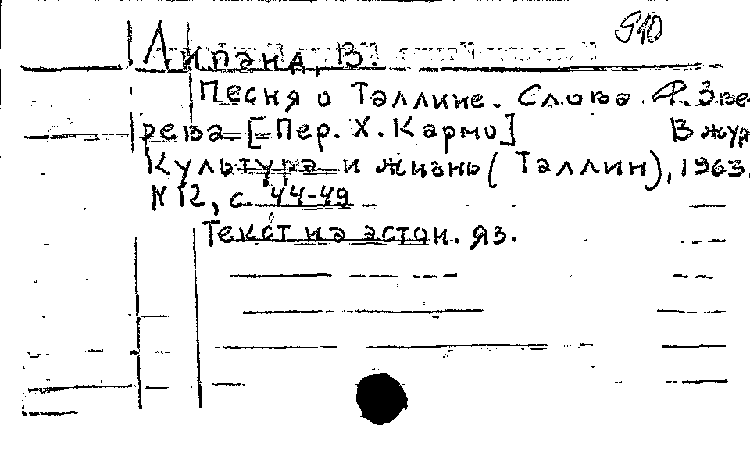 910
Липанд, В.
Песня о Таллине. Слова Ф. Зве
рева. [Пер. Х. Кармо] В жур
Культура и жизнь (Таллин), 1963,
N 12, с. 44-49
Текст на эстон. яз.